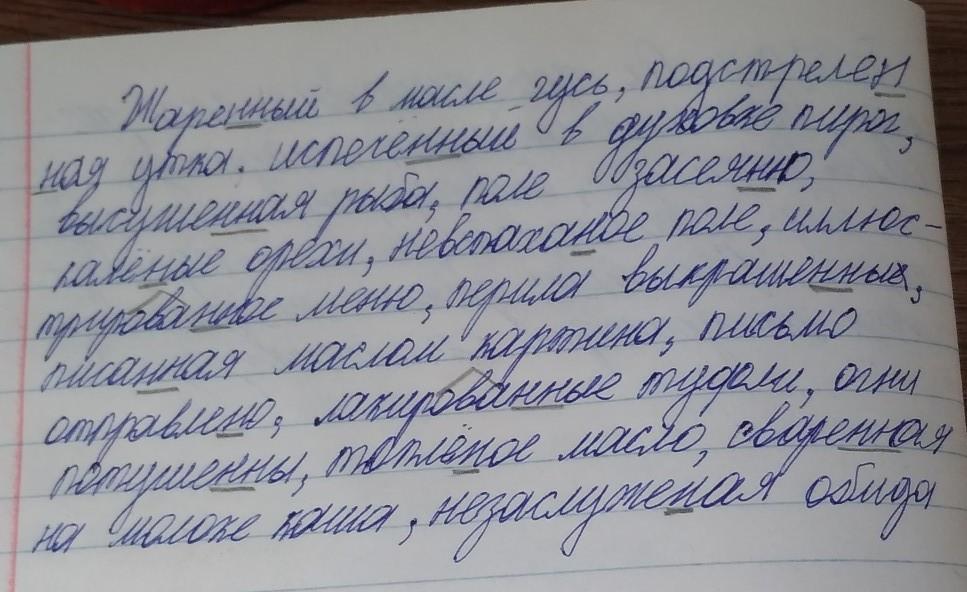 Жаренный в масле гусь, подстрелен
ная утка. испечённый в духовке пирог,
высушенная рыба, поле засеянно,
калёные орехи, невспаханое поле, иллюс-
трированное меню, перила выкрашенные,
писанная маслом картина, письмо
отправлено, лакированные туфли, огни
потушенны, топлёное масло, сваренная
на молоке каша, незаслуженая обида